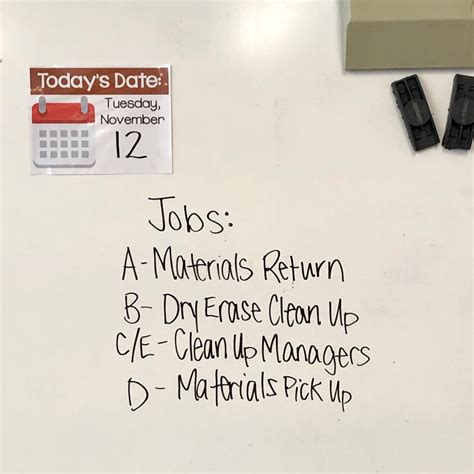 Today's Date:
Tuesday,
November
12
Jobs:
A-Materials Return
B-Dry Erase Clean Up
C/E-Clean Up Managers
D-Materials Pick Up